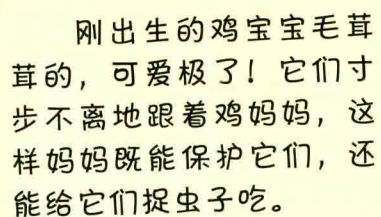 刚出生的鸡宝宝毛茸
茸的，可爱极了！它们寸
步不离地跟着鸡妈妈，这
样妈妈既能保护它们，还
能给它们捉虫子吃。